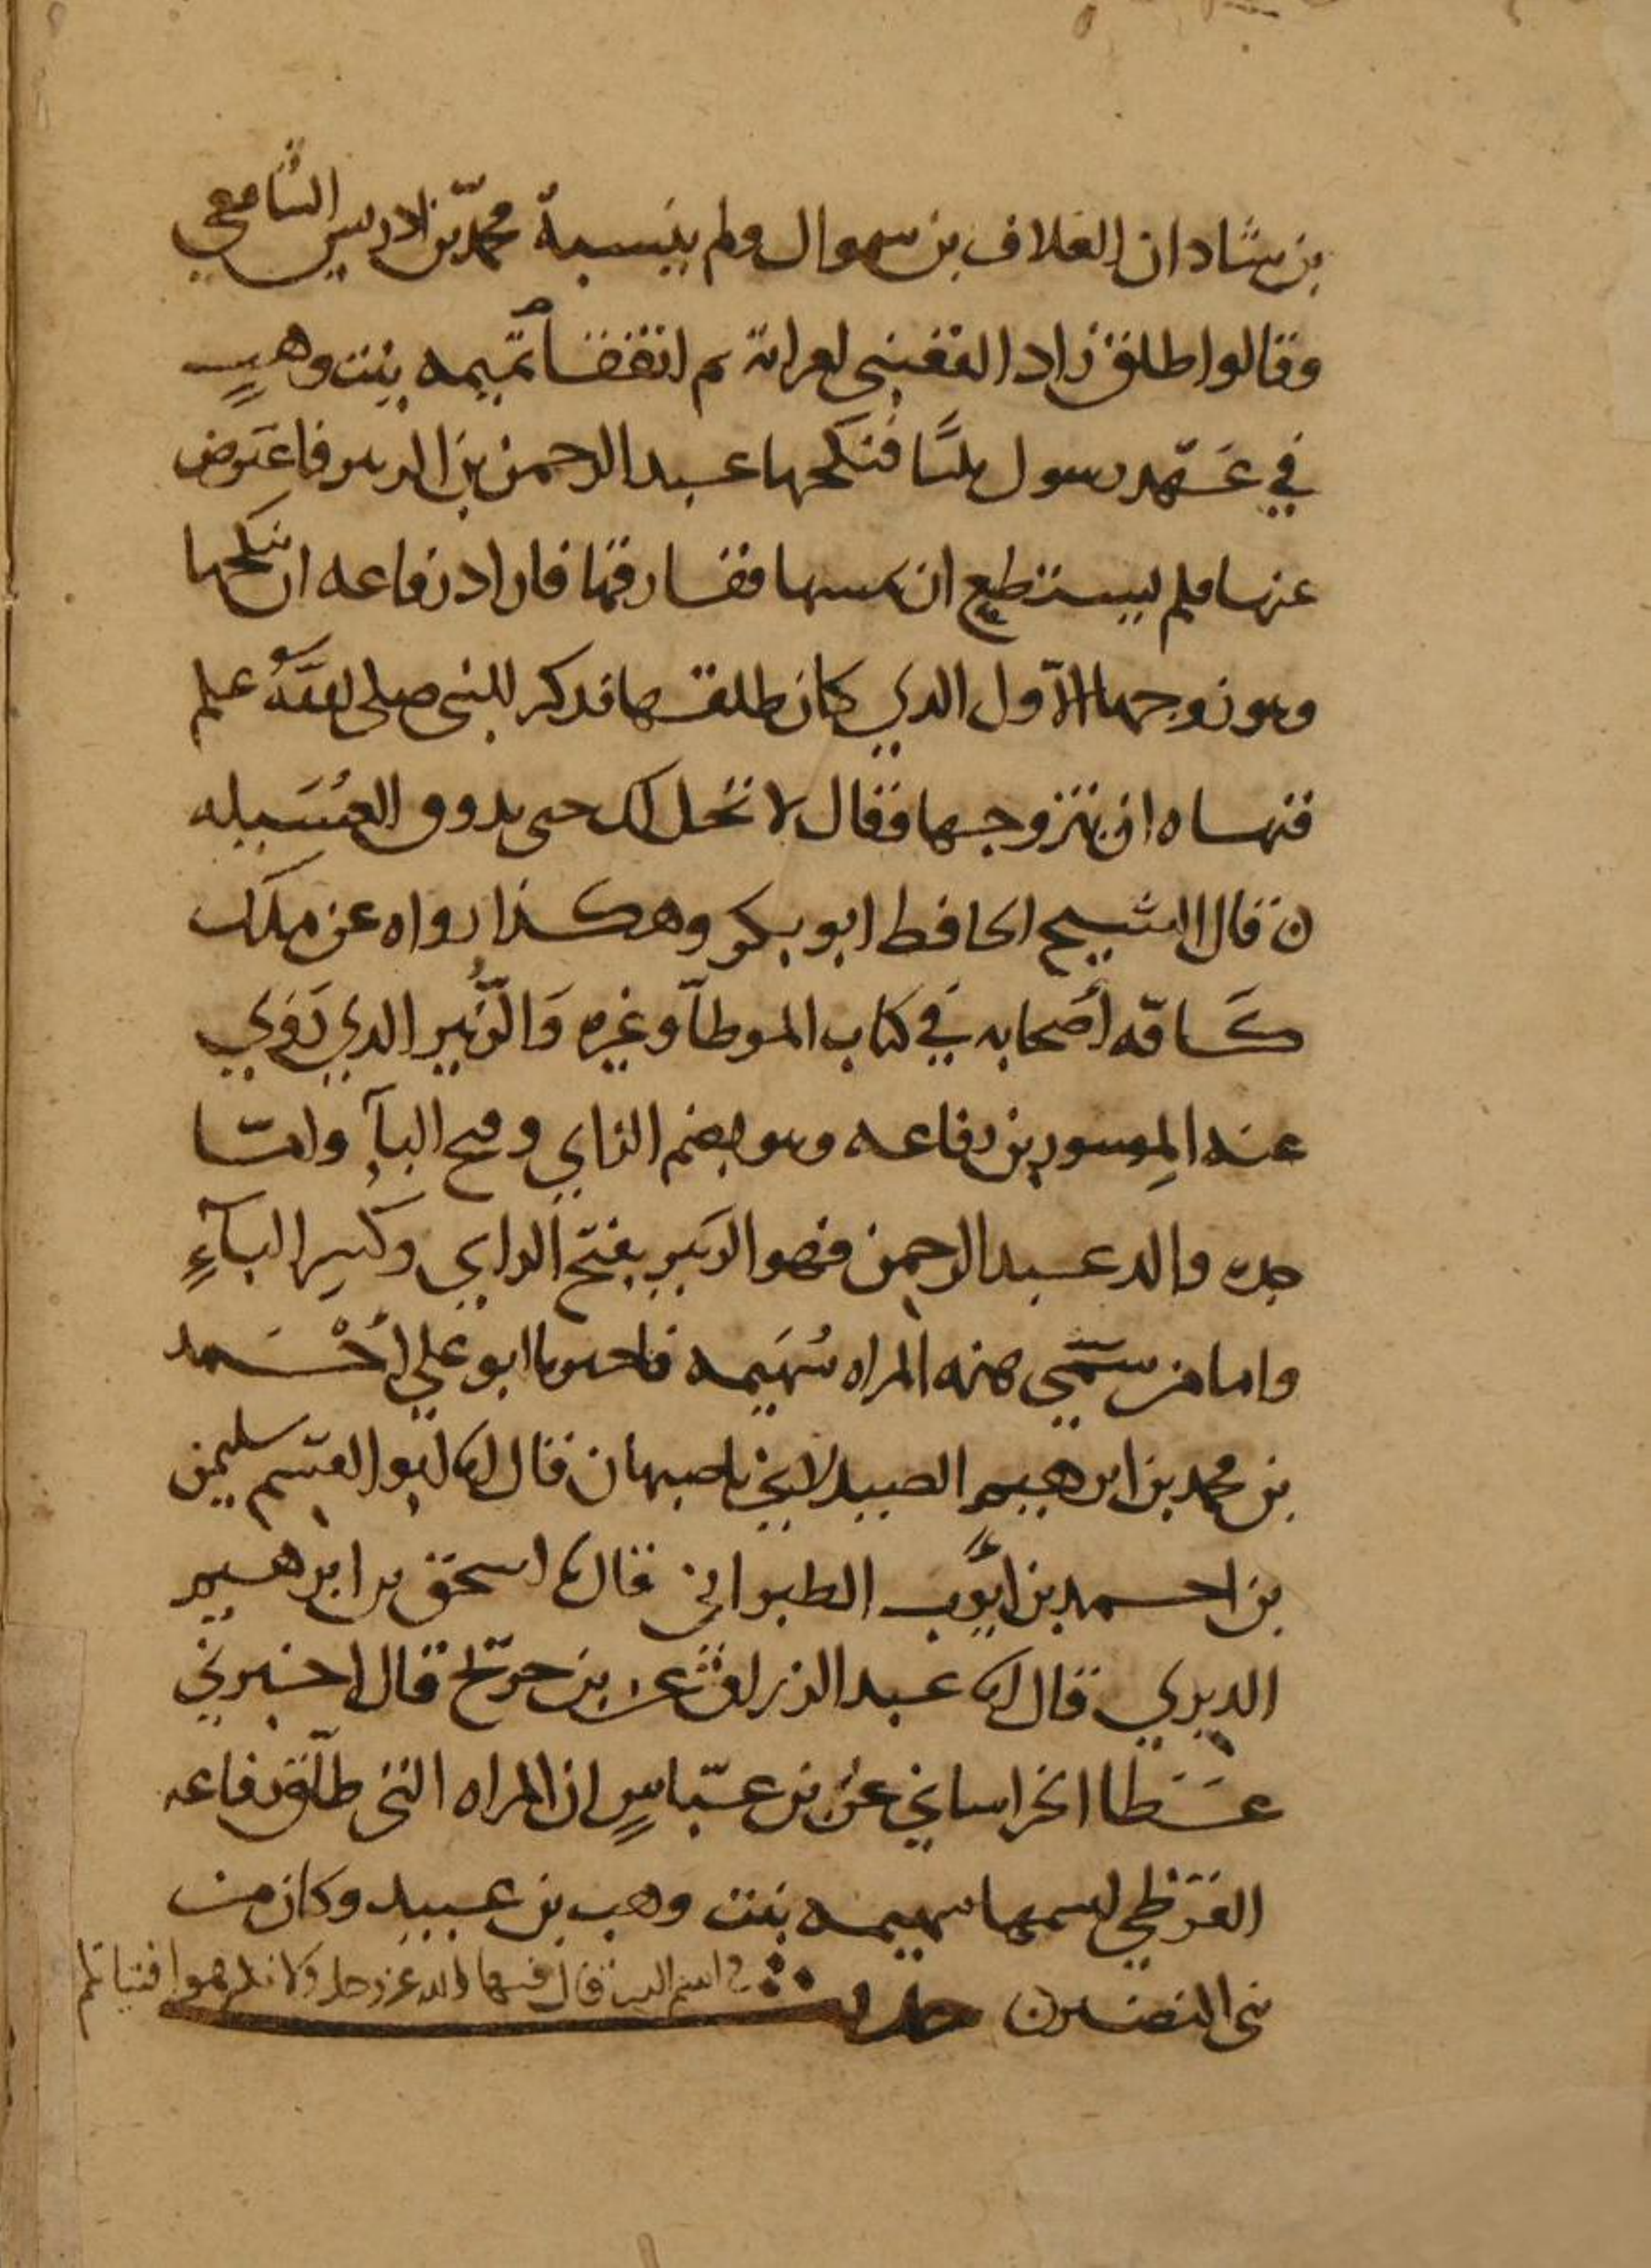 بن شاذان العلاف بن سموال ولم ينسبه محمد بن ادريس الشافعي
وقالوا طلق زاد القعنبي امراته ثم اتفقا تميمه بنت وهب
في عهد رسول ثلثا فنكحها عبد الرحمن بن الزبير فاعترض
عنها فلم يستطع ان يمسها ففارقها فاراد رفاعه ان ينكحها
وهو زوجها الاول الذي كان طلقها فذكر للنبي صلى الله علم
فنهاه ان يتزوجها فقال لا تحل لك حتى يذوق العسيله
ن قال الشيخ الحافظ ابو بكر وهكذا رواه عن ملك
كافه أصحابه في كتاب الموطأ وغيره والزُبير الذي روي
عنه المسور بن رفاعه وهو بضم الزاي وفتح البآ وامّا
جده والد عبد الرحمن فهو الزبير بفتح الزاي وكسر البآءِ
واما من سمّي هذه المراه سُهَيمه فاخبرنا ابو علي أحْمد
بن محمد بن ابرهيم الصيدلاني باصبهان قال انا ابو القسم سليمن
بن احمد بن ايّوب الطبراني قال نا اسحق بن ابرهيم
الدبري قال انا عبد الرزاق عن بن جريج قال اخبرني
عَطا الخراساني عن بن عبّاسٍ ان المراه التي طلّق رفاعه
القرظي اسمها سهيمه بنت وهب بن عبيد وكان من
بني النضير ن حديث في اسم الذي قال فيها الله عز وجل ولا تكرهوا فتياتكم